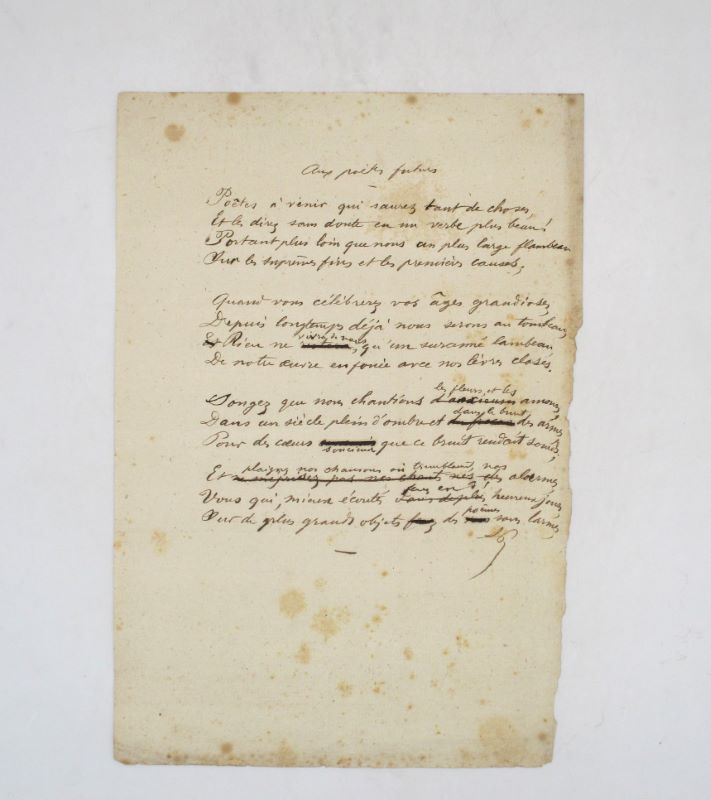 Aux poètes futurs
Poëtes à venir qui saurez tant de choses,
Et les direz sans doute en un verbe plus beau!
Portant plus loin que nous un plus large flambeau
Sur les suprêmes fins et les premières causes,
Quand vous célébrerez vos âges grandioses,
Depuis longtemps déjà nous serons au tombeau,
Et Rien ne vivra de nous, qu'un suranné lambeau
De notre œuvre enfouie avec nos lèvres closes.
Songez que nous chantions les fleurs et les amours,
Dans un siècle plein d'ombre et dans le bruit des armes
Pour des cœurs soucieux que ce bruit rendait sourds,
Et plaignez nos chansons où tremblaient nos alarmes
ne méprisez pas nos chants nés des
Vous qui, mieux écoutés, ferez en d' heureux jours
dans de plus
Sur de plus grands objets des poèmes sans larmes